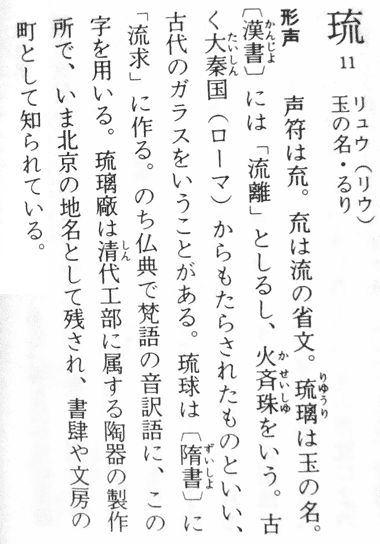 琉 11 リュウ(リウ)
玉の名・るり
形声 声符は㐬。㐬は流の省文。琉璃は玉の名。
〔漢書〕には「流離」としるし、火斉珠をいう。古
く大秦国(ローマ)からもたらされたものといい、
古代のガラスをいうことがある。琉球は〔隋書〕に
「流求」に作る。のち仏典で梵語の音訳語に、この
字を用いる。琉璃廠は清代工部に属する陶器の製作
所で、いま北京の地名として残され、書肆や文房の
町として知られている。